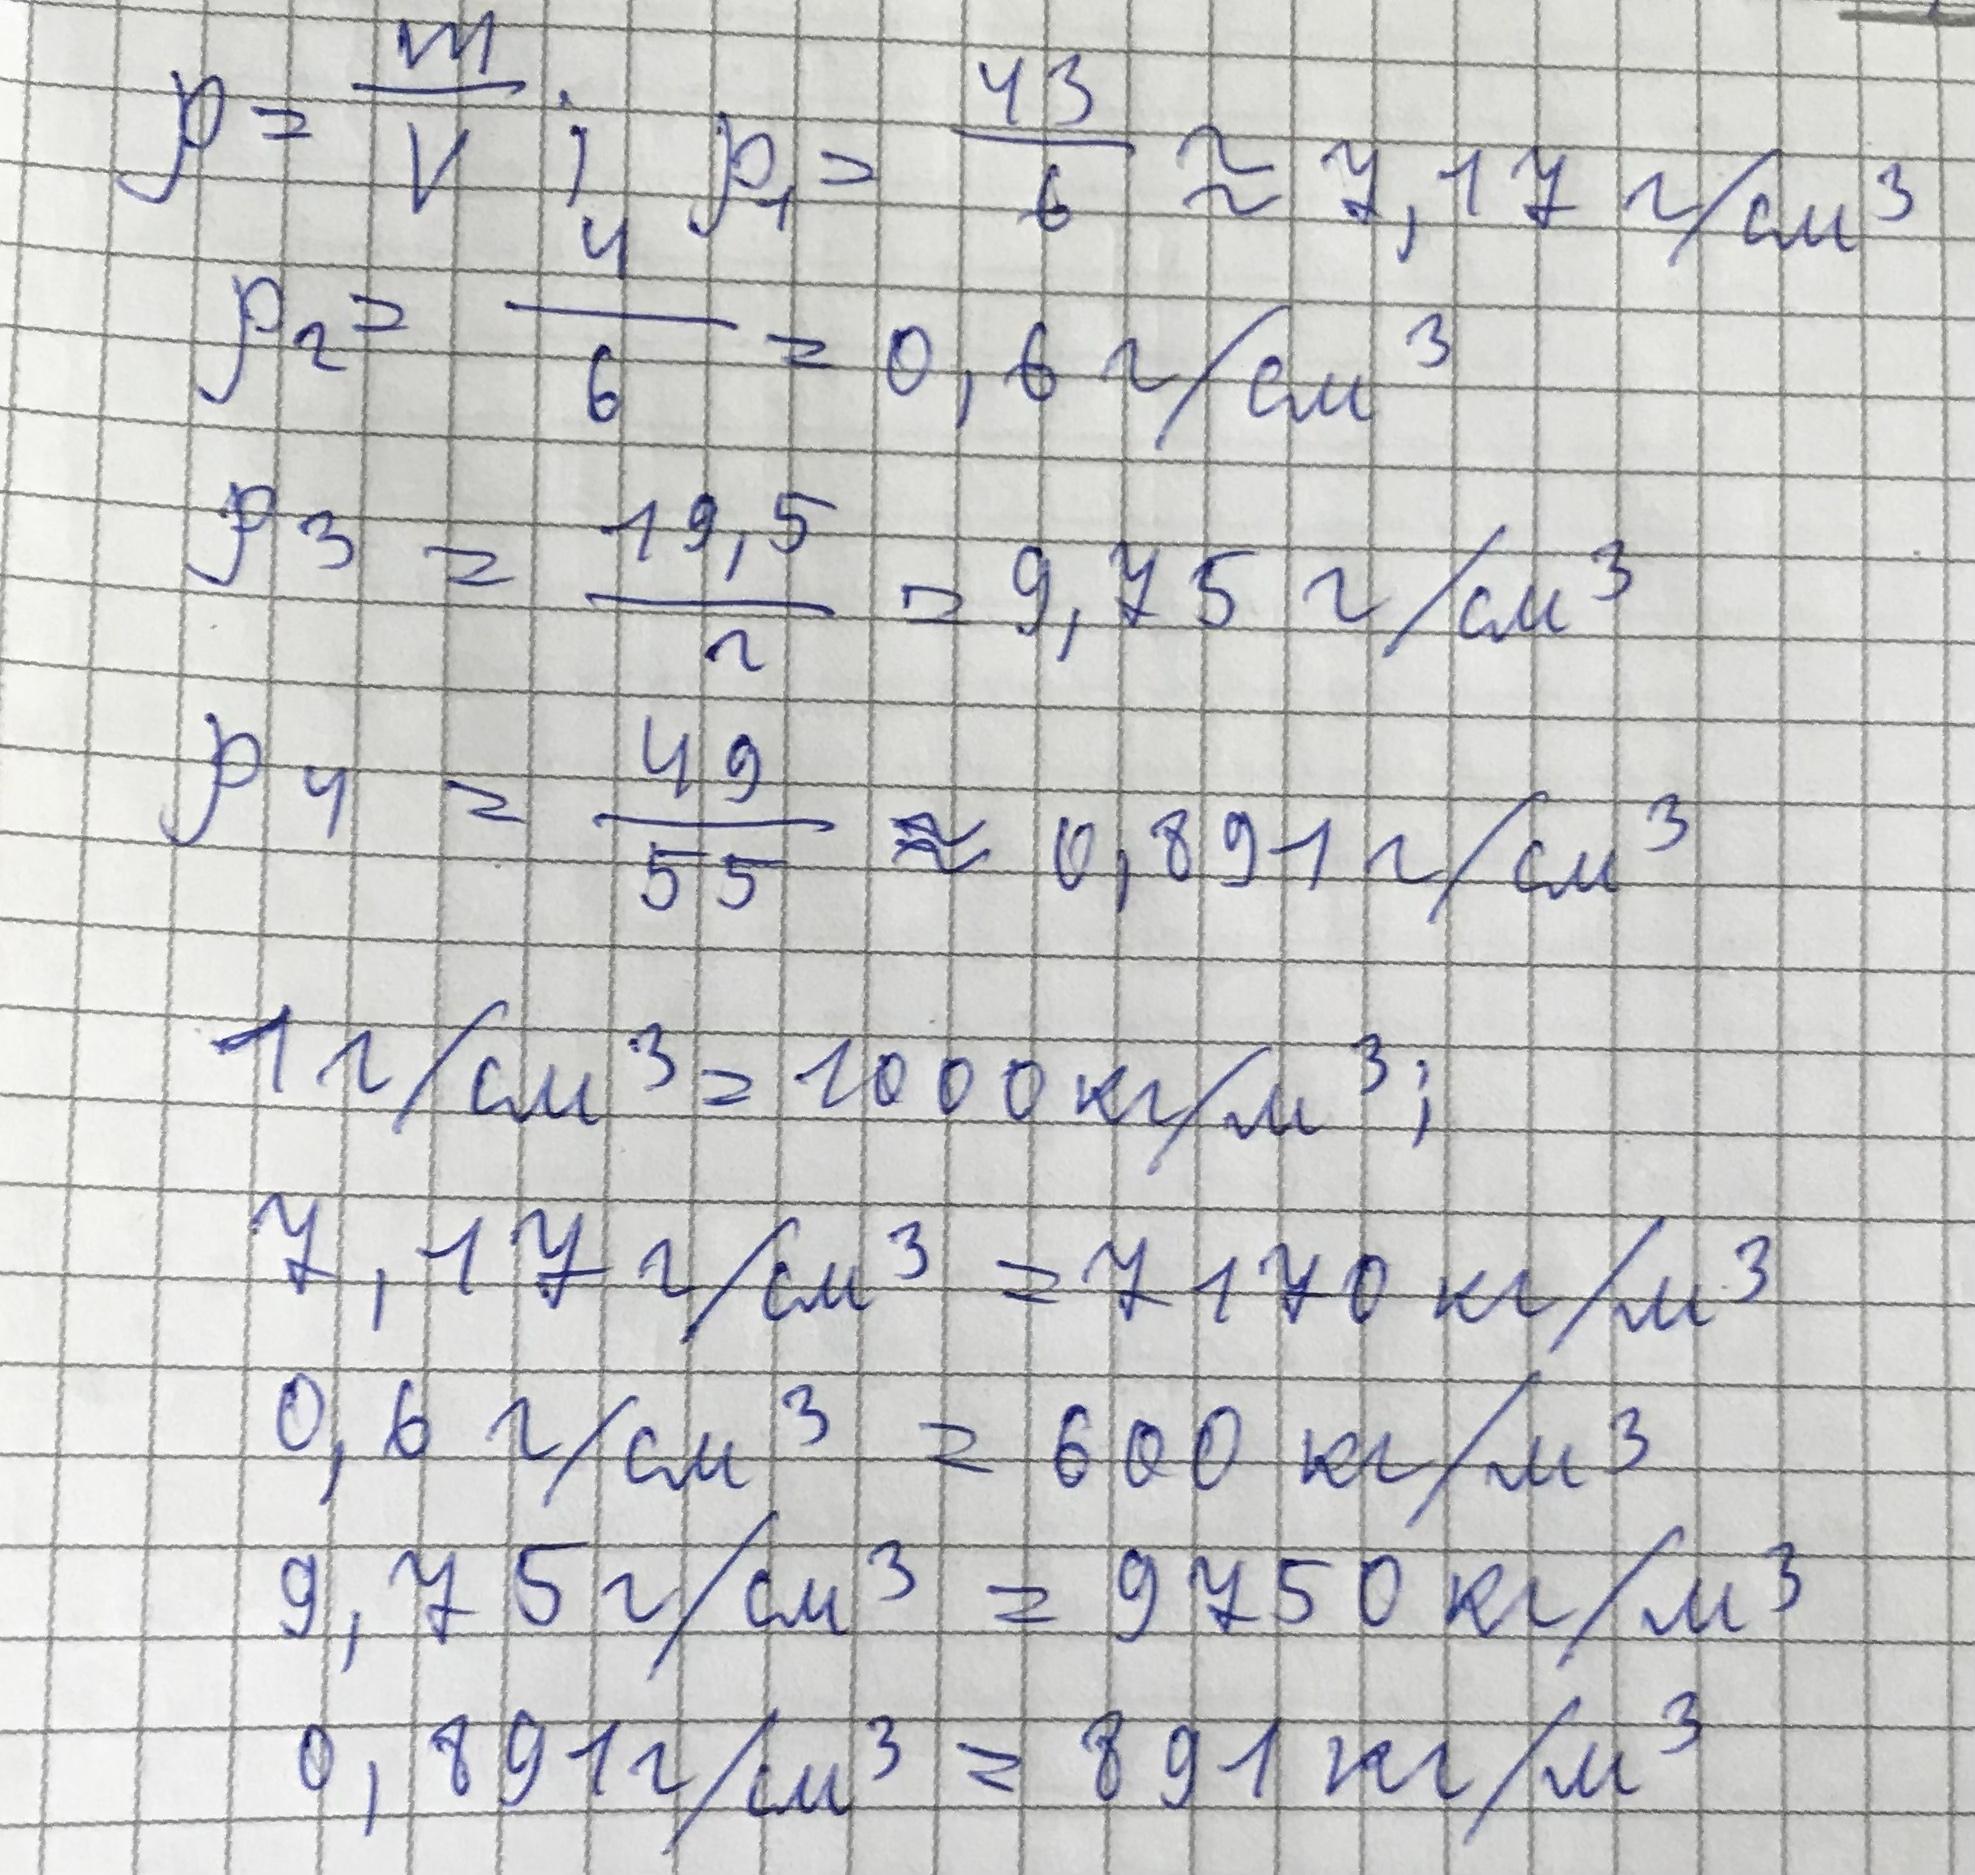 ρ = m/V ; ρ₁ = 43/6 ≈ 7,17 г/см³
ρ₂ = 4/6 = 0,6 г/см³
ρ₃ = 19,5/2 = 9,75 г/см³
ρ₄ = 49/55 ≈ 0,891 г/см³
1 г/см³ = 1000 кг/м³;
7,17 г/см³ = 7170 кг/м³
0,6 г/см³ = 600 кг/м³
9,75 г/см³ = 9750 кг/м³
0,891 г/см³ = 891 кг/м³